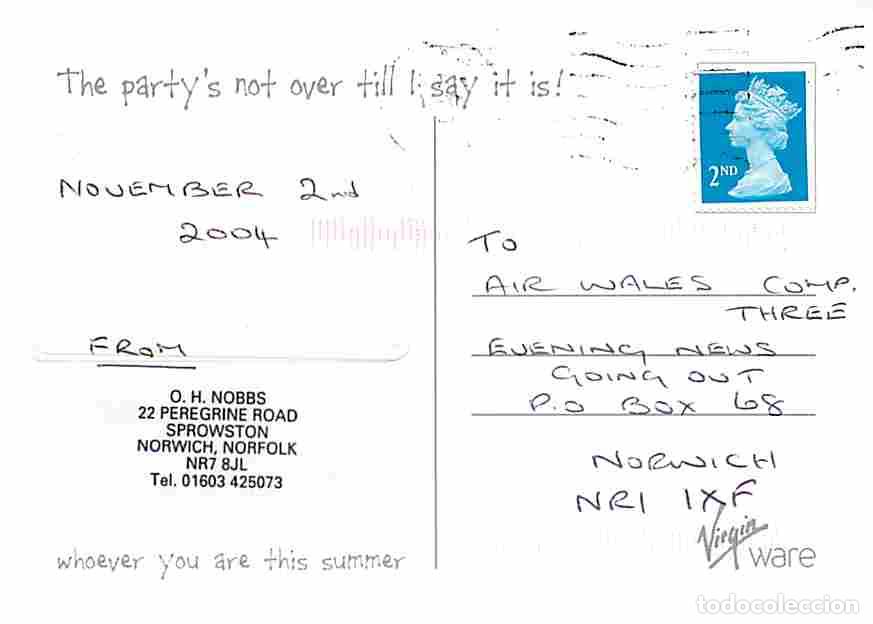 The party's not over till I say it is!
2ND
NOVEMBER 2nd
2004
TO
AIR WALES COMP.
THREE
FROM
EVENING NEWS
GOING OUT
P.O BOX 68
O. H. NOBBS
22 PEREGRINE ROAD
SPROWSTON
NORWICH, NORFOLK
NR7 8JL
Tel. 01603 425073
NORWICH
NR1 1XF
Virgin ware
whoever you are this summer
todocoleccion